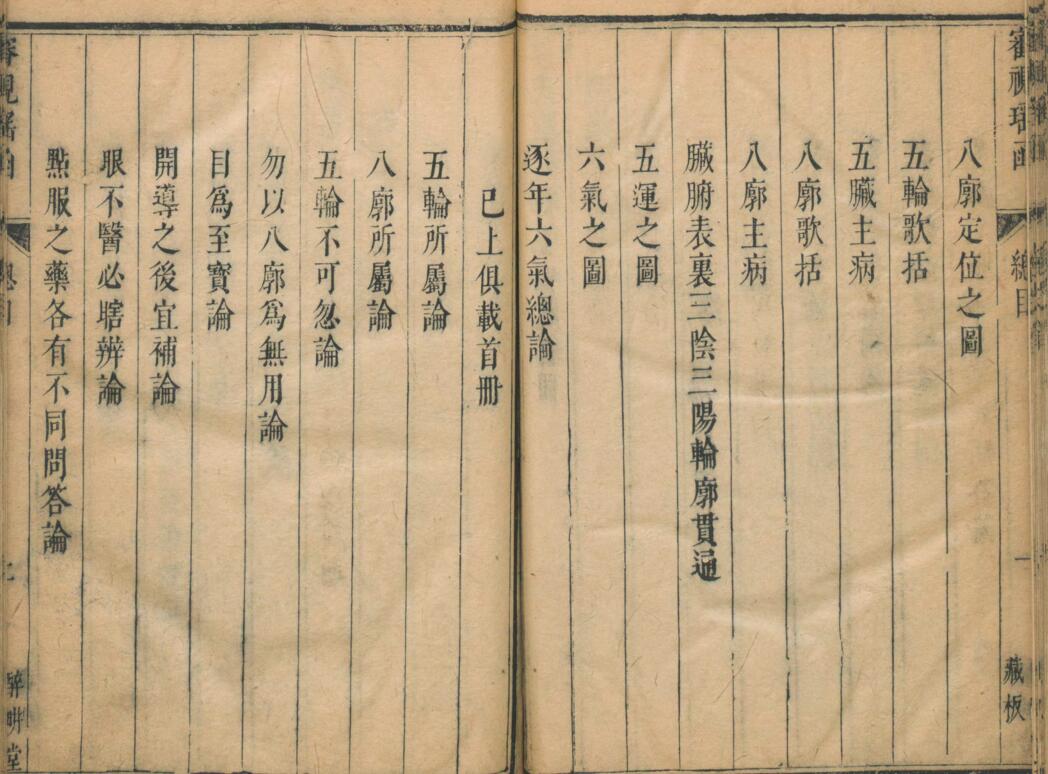 審視瑤函
總目
一
藏板
八廓定位之圖
五輪歌括
五臟主病
八廓歌括
八廓主病
臟腑表裏三陰三陽輪廓貫通
五運之圖
六氣之圖
逐年六氣總論
已上俱載首冊
五輪所屬論
八廓所屬論
五輪不可忽論
勿以八廓爲無用論
目爲至寳論
開導之後宜補論
眼不醫必瞎辨論
點服之藥各有不同問答論
審視瑤函
總目
醉畊堂